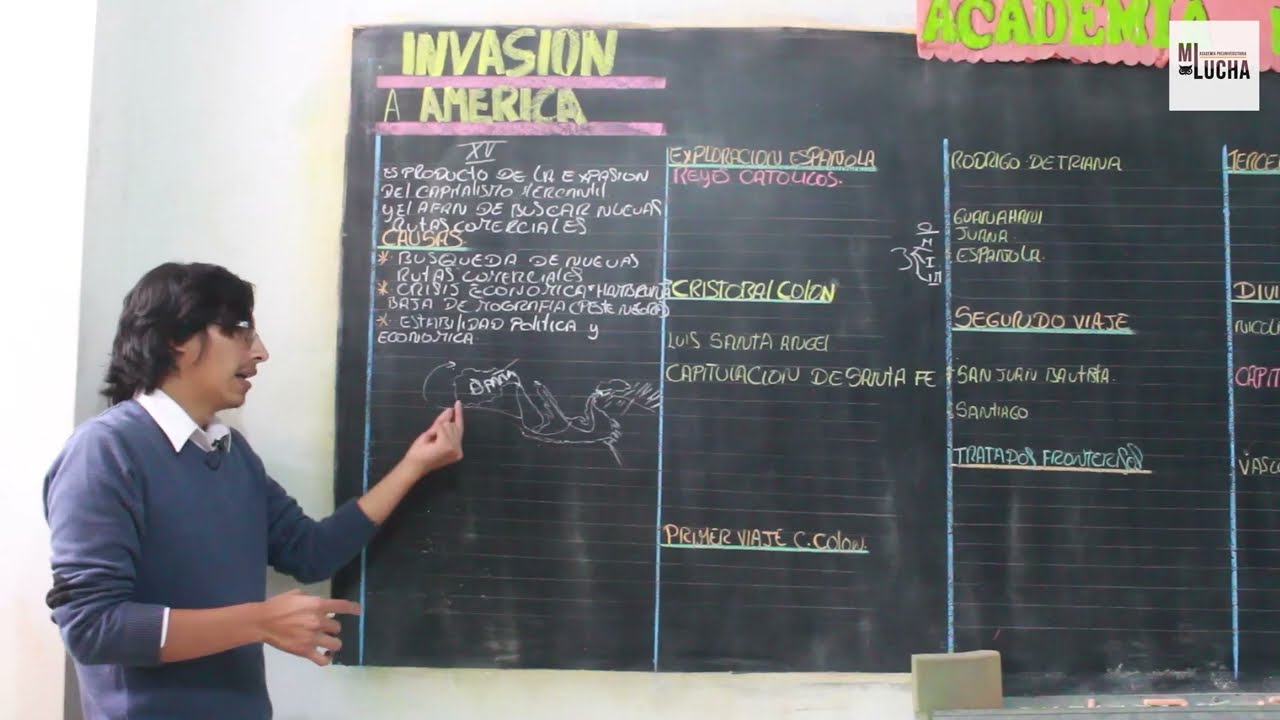 INVASION
A AMERICA
XV
ES PRODUCTO DE LA EXPASION
DEL CAPITALISMO MERCANTIL
Y EL AFAN DE BUSCAR NUEVAS
RUTAS COMERCIALES
CAUSAS
* BUSQUEDA DE NUEVAS
RUTAS COMERCIALES
* CRISIS ECONOMICA * HAMBRUNA
BAJA DEMOGRAFIA (PESTE NEGRA)
* ESTABILIDAD POLITICA Y
ECONOMICA.
EXPLORACION ESPAÑOLA
REYES CATOLICOS.
CRISTOBAL COLON
LUIS SANTA ANGEL
CAPITULACION DE SANTA FE
PRIMER VIAJE C. COLON.
RODRIGO DE TRIANA
GUANAHANI
JUANA
ESPAÑOLA.
SEGUNDO VIAJE
SAN JUAN BAUTISTA.
SANTIAGO
TRATADOS FRONTERIZOS
TERCE
DIVI
NICOL
CAPIT
VASC
ACADEMIA
MI
ACADEMIA PREUNIVERSITARIA
LUCHA